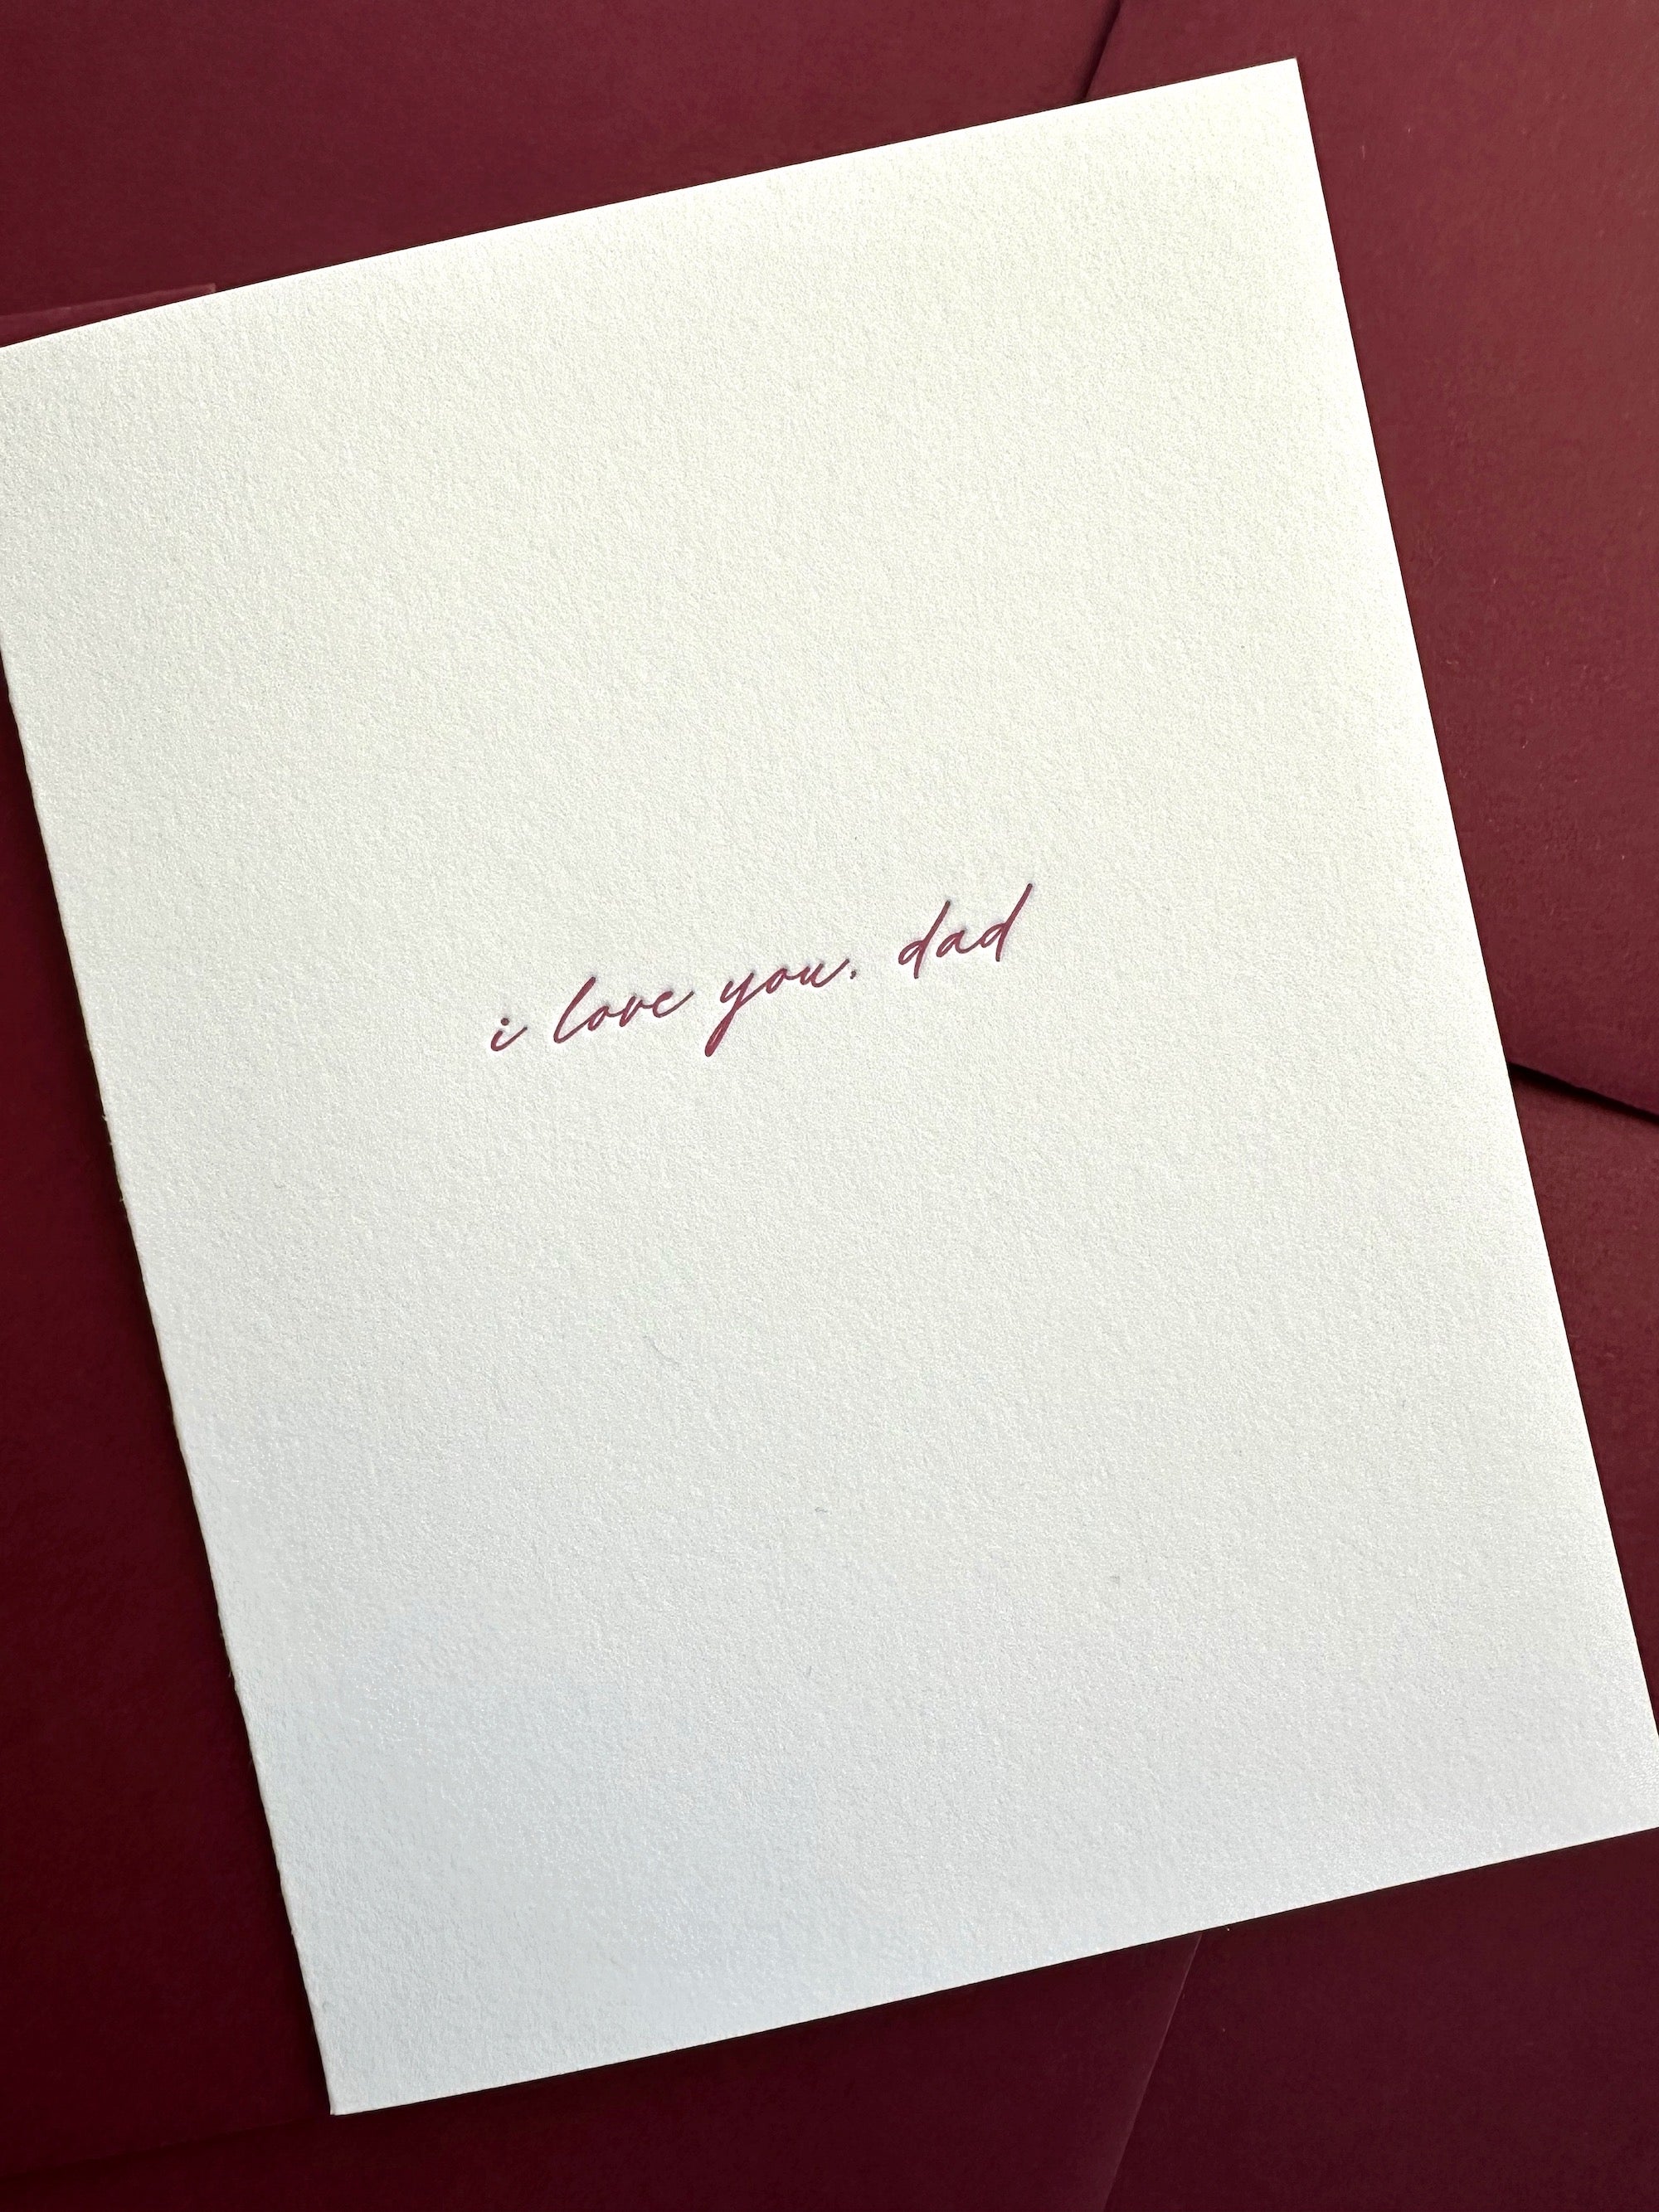 i love you. dad